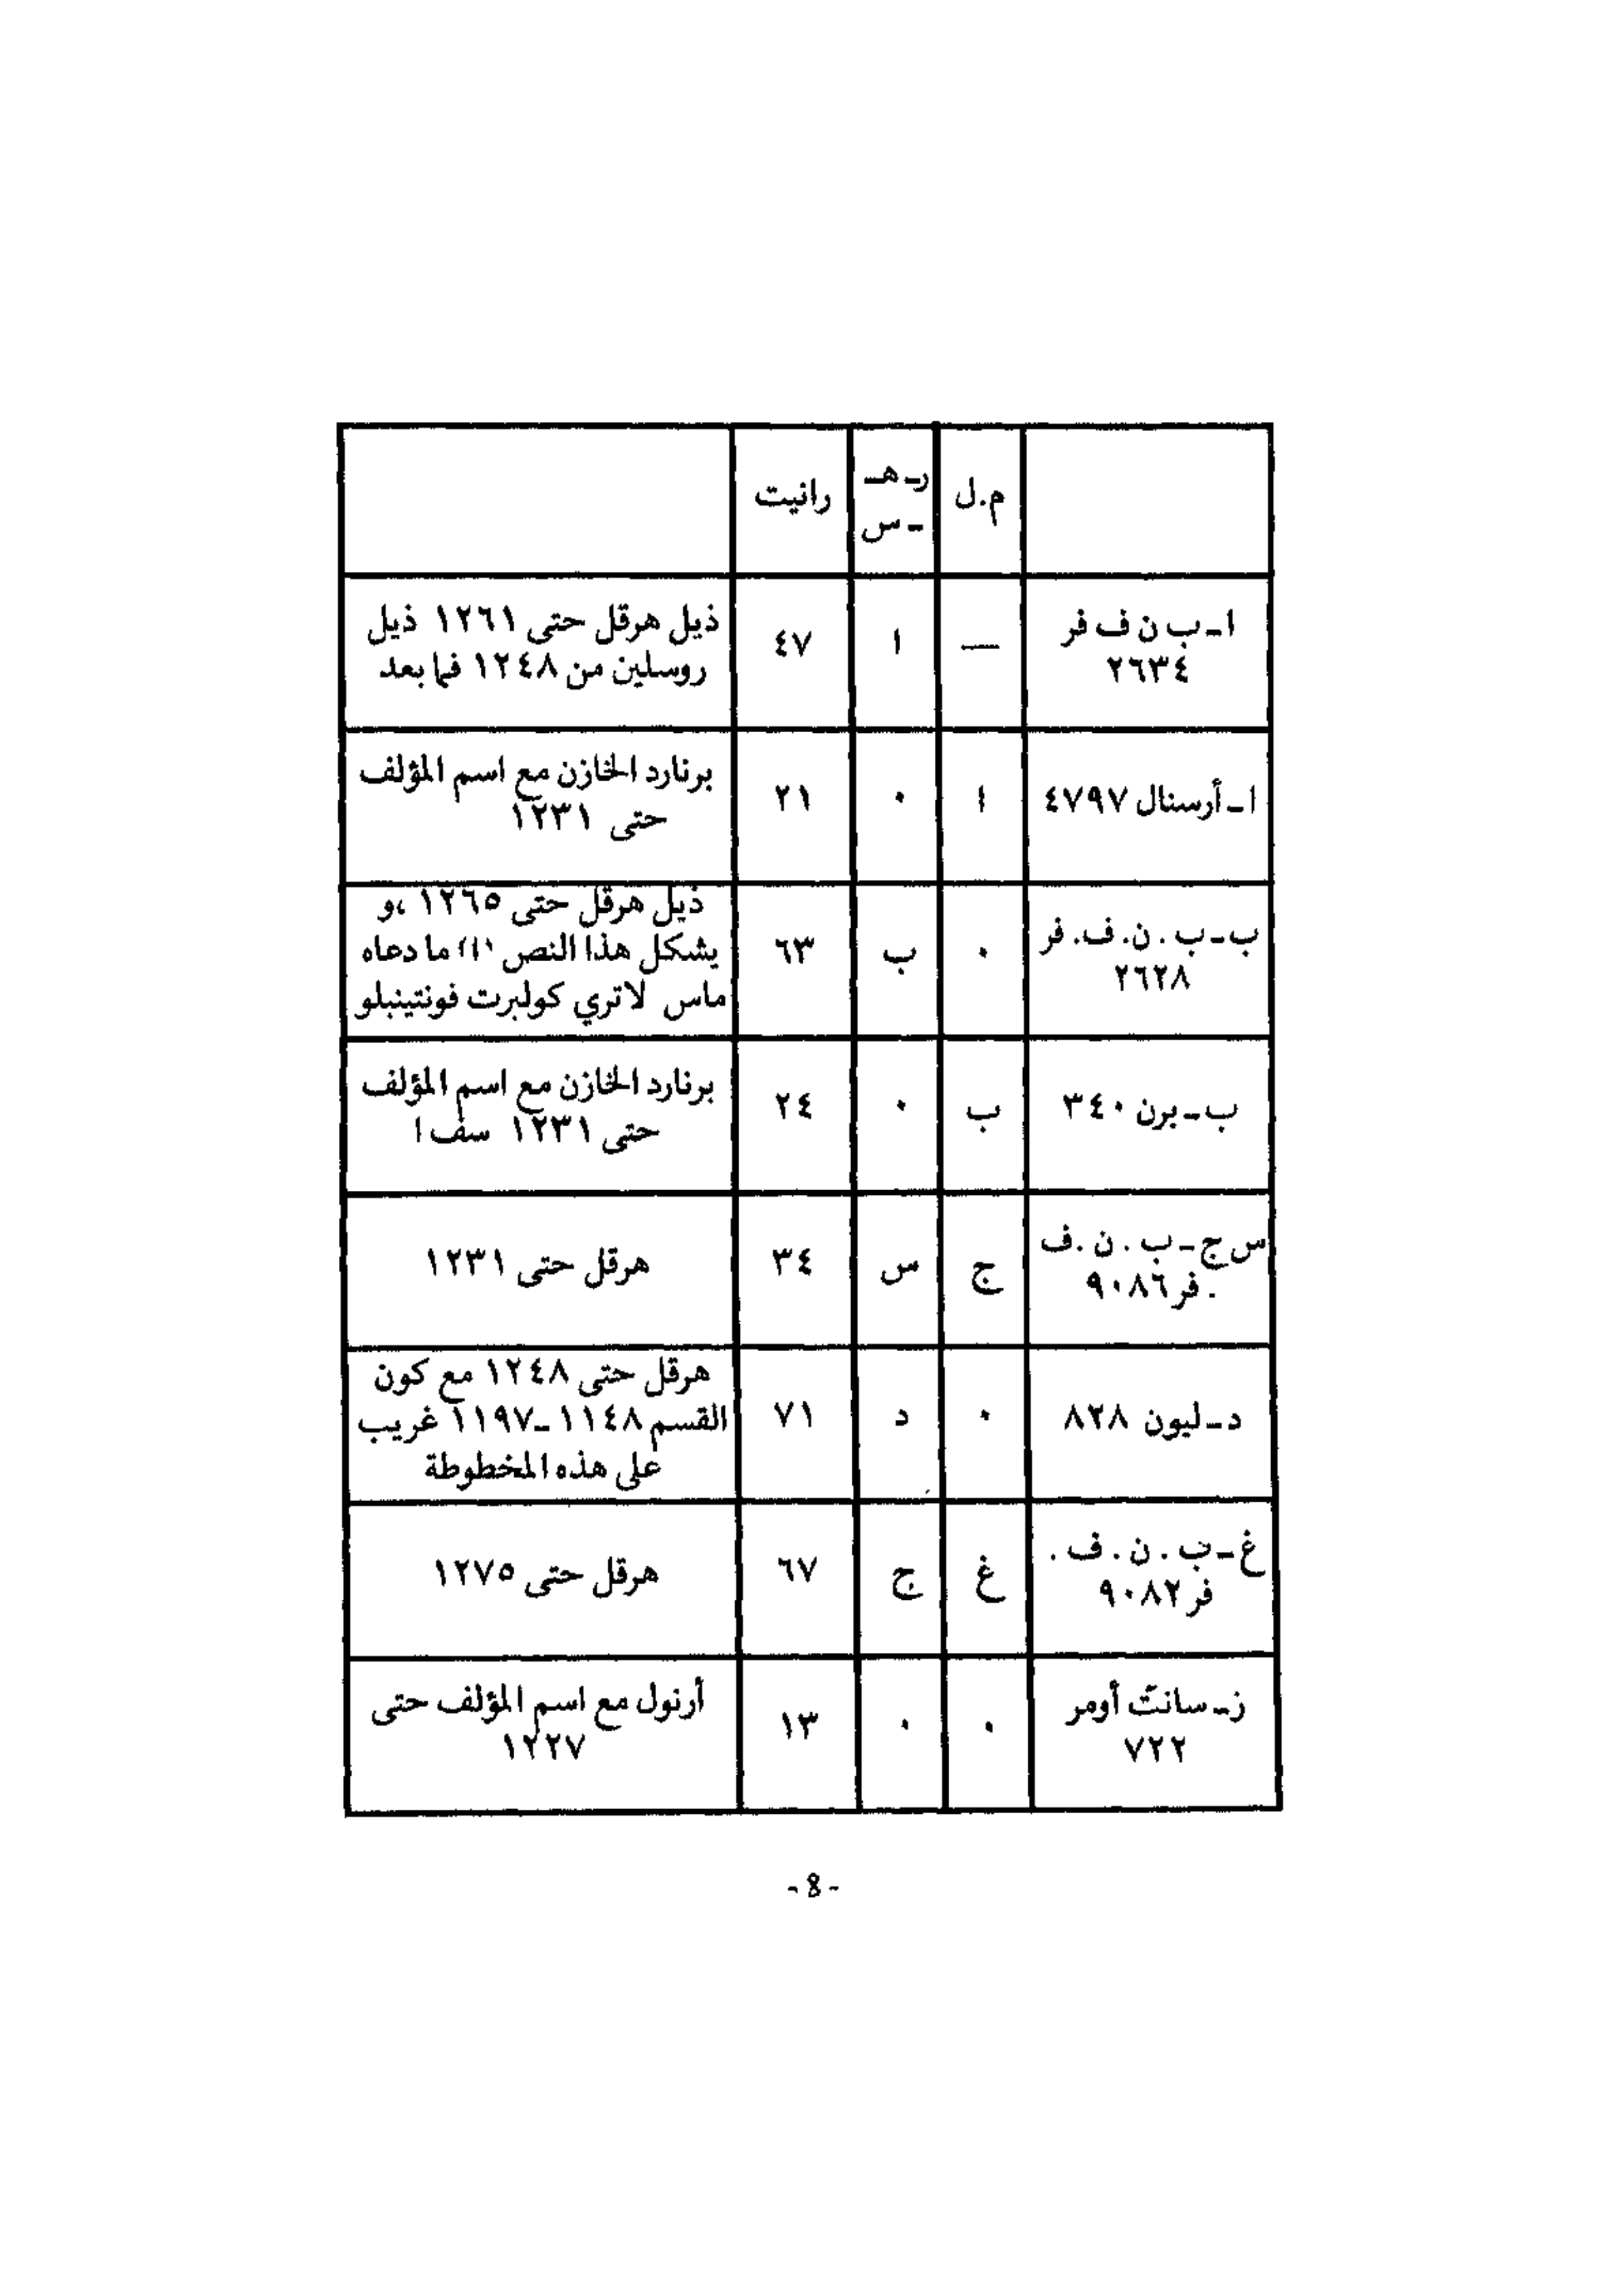 م.ل
ر-هـ
- س
رانيت
ا-ب ن ف فر
٢٦٣٤
—
ا
٤٧
ذيل هرقل حتى ١٢٦١ ذيل
روسلين من ١٢٤٨ فما بعد
ا-أرسنال ٤٧٩٧
ا
٠
٢١
برنارد الخازن مع اسم المؤلف
حتى ١٢٣١
ب-ب . ن. ف. فر
٢٦٢٨
٠
ب
٦٣
ذيل هرقل حتى ١٢٦٥ ،و
يشكل هذا النص (١) ما دعاه
ماس لاتري كولبرت فونتينبلو
ب-برن ٣٤٠
ب
٠
٢٤
برنارد الخازن مع اسم المؤلف
حتى ١٢٣١ سف ا
س ج-ب . ن .ف
. فر٩٠٨٦
ج
س
٣٤
هرقل حتى ١٢٣١
د-ليون ٨٢٨
٠
د
٧١
هرقل حتى ١٢٤٨ مع كون
القسم ١١٤٨-١١٩٧ غريب
على هذه المخطوطة
غ-ب . ن . ف .
فر٩٠٨٢
غ
ج
٦٧
هرقل حتى ١٢٧٥
ز-سانت أومر
٧٢٢
٠
٠
١٣
أرنول مع اسم المؤلف حتى
١٢٢٧
-8-